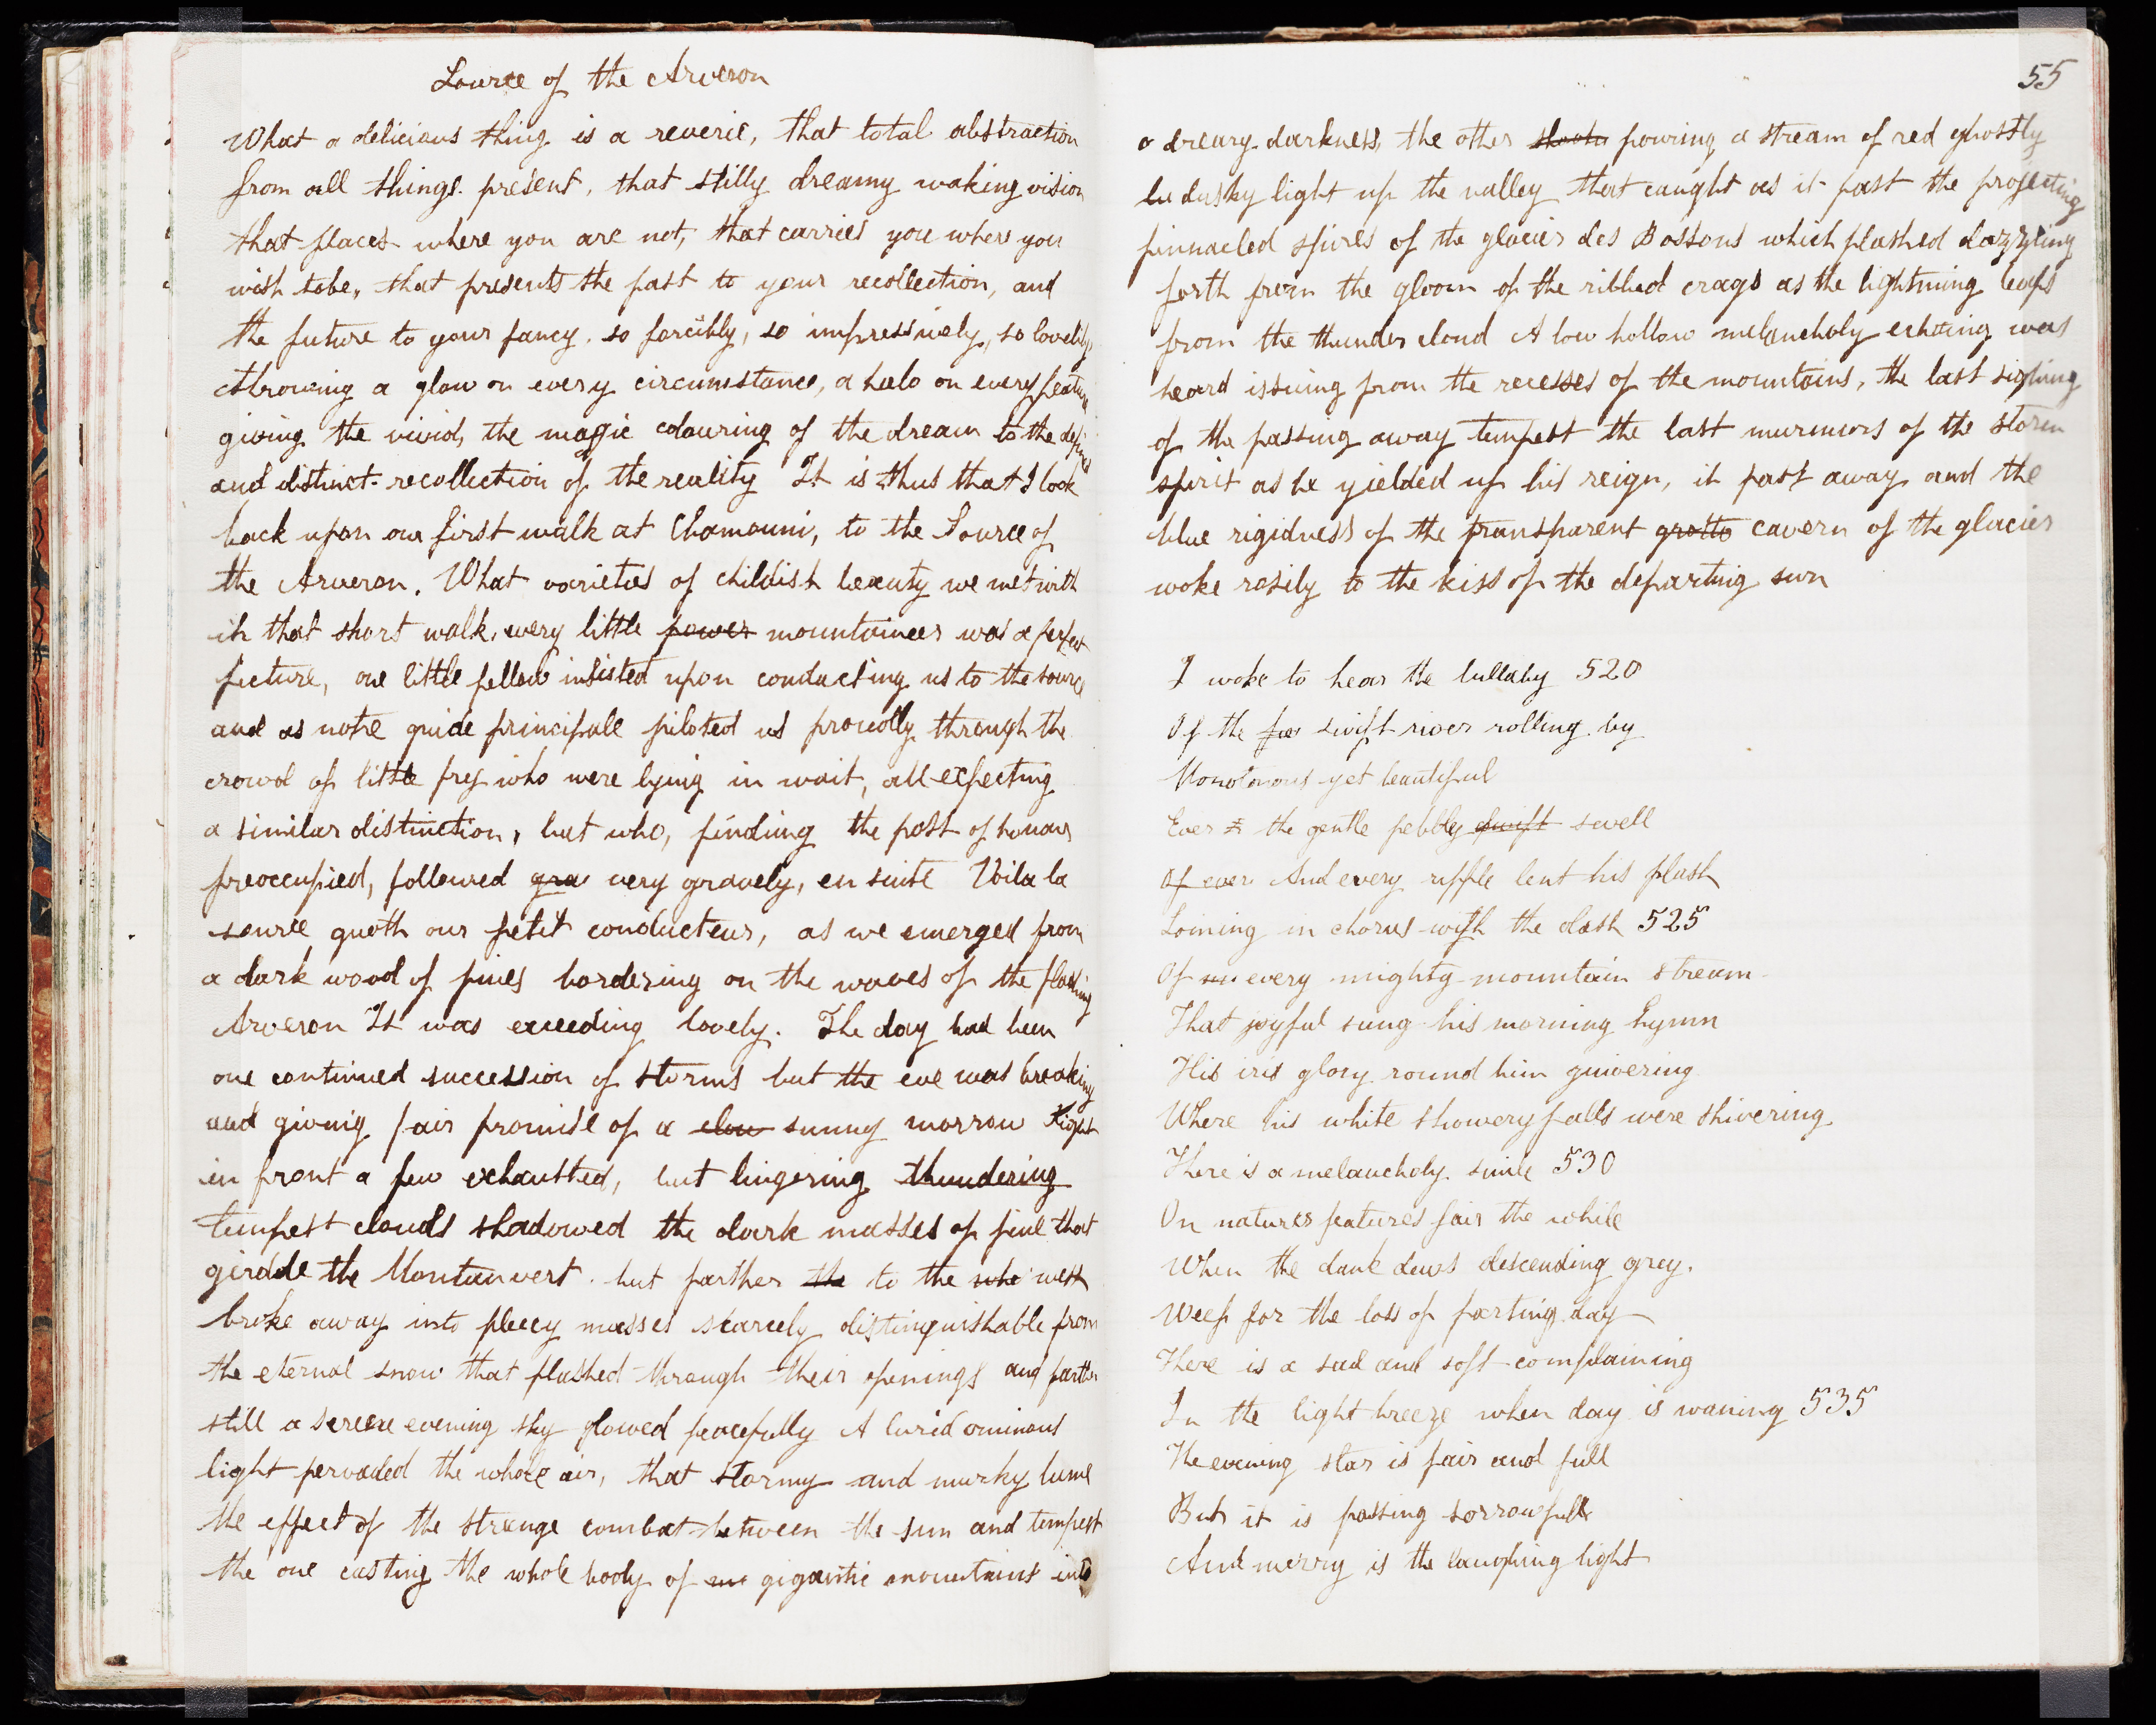 Source of the Arveron
What a delicious thing is a reverie, that total abstraction
from all things present, that stilly dreamy waking vision
that places where you are not, that carries you where you
wish to be, that presents the past to your recollection, and
the future to your fancy, so forcibly, so impressively, so lovelily
throwing a glow on every circumstance, a halo on every feature
giving the vivid, the magic colouring of the dream to the defined
and distinct recollection of the reality It is thus that I look
back upon our first walk at Chamouni, to the Source of
the Arveron. What varieties of childish beauty we met with
in that short walk, every little power mountaineer was a perfect
picture, one little fellow insisted upon conducting us to the source
and as notre guide principale piloted us proudly through the
crowd of little fry who were lying in wait, all expecting
a similar distinction, but who, finding the post of honour
preoccupied, followed gra very gravely, en suite Voila la
source quoth our petit conducteur, as we emerged from
a dark wood of pines bordering on the waves of the flashing
Arveron It was exceeding lovely. The day had been
one continued succession of storms but the eve was breaking
and giving fair promise of a clou sunny morrow Right
in front a few exhausted, but lingering thundering
tempest clouds shadowed the dark masses of pine that
girdle the Montanvert. but farther the to the whe west
broke away into fleecy masses scarcely distinguishable from
the eternal snow that flashed through their openings and farther
still a serene evening sky glowed peacefully A lurid ominous
light pervaded the whole air, that stormy and murky lume
the effect of the strange combat between the sun and tempest
the one casting the whole body of gigantic mountains into
55
a dreary darkness, the other pouring a stream of red ghostly
dusky light up the valley that caught as it past the projecting
pinnacled spires of the glacier des Bossons which flashed dazzling
forth from the gloom of the ribbed crags as the lightning leaps
from the thunder cloud A low hollow melancholy echoing was
heard issuing from the recesses of the mountains, the last sighing
of the passing away tempest the last murmurs of the storm
spirit as he yielded up his reign, it past away and the
blue rigidness of the transparent grotto cavern of the glacier
woke rosily to the kiss of the departing sun
I woke to hear the lullaby 520
Of the swift river rolling by
Monotonous yet beautiful
Ever the gentle pebbly swift swell
Of ever And every ripple lent his plash
Joining in chorus with the dash 525
Of every mighty mountain stream
That joyful sung his morning hymn
His iris glory round him quivering
Where his white showery falls were shivering
There is a melancholy smile 530
On natures features fair the while
When the dank dews descending grey.
Weep for the loss of parting day
There is a sad and soft complaining
In the light breeze when day is waning 535
The evening star is fair and full
But it is passing sorrowfull
And merry is the laughing light